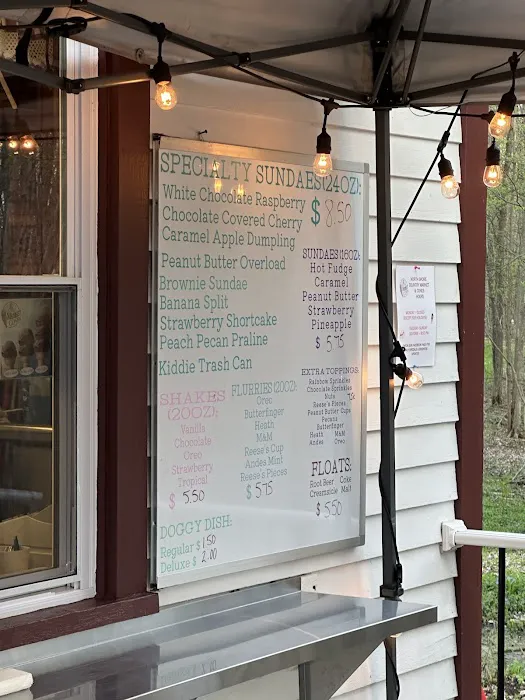 SPECIALTY SUNDAES(24OZ):
White Chocolate Raspberry
Chocolate Covered Cherry
$ 8.50
Caramel Apple Dumpling
Peanut Butter Overload
Brownie Sundae
Banana Split
Strawberry Shortcake
Peach Pecan Praline
Kiddie Trash Can
SUNDAES(16OZ):
Hot Fudge
Caramel
Peanut Butter
Strawberry
Pineapple
$ 5.75
SHAKES
(20OZ):
Vanilla
Chocolate
Oreo
Strawberry
Tropical
$ 5.50
FLURRIES(20OZ):
Oreo
Butterfinger
Heath
M&M
Reese's Cup
Andes Mint
Reese's Pieces
$ 5.75
EXTRA TOPPINGS:
Rainbow Sprinkles
Chocolate Sprinkles
Nuts
Reese's Pieces
Peanut Butter Cups
Pecans
Butterfinger
Heath M&M
Andes Oreo
FLOATS:
Root Beer Coke
Creamsicle Malt
$ 5.50
DOGGY DISH:
Regular $ 1.50
Deluxe $ 2.00